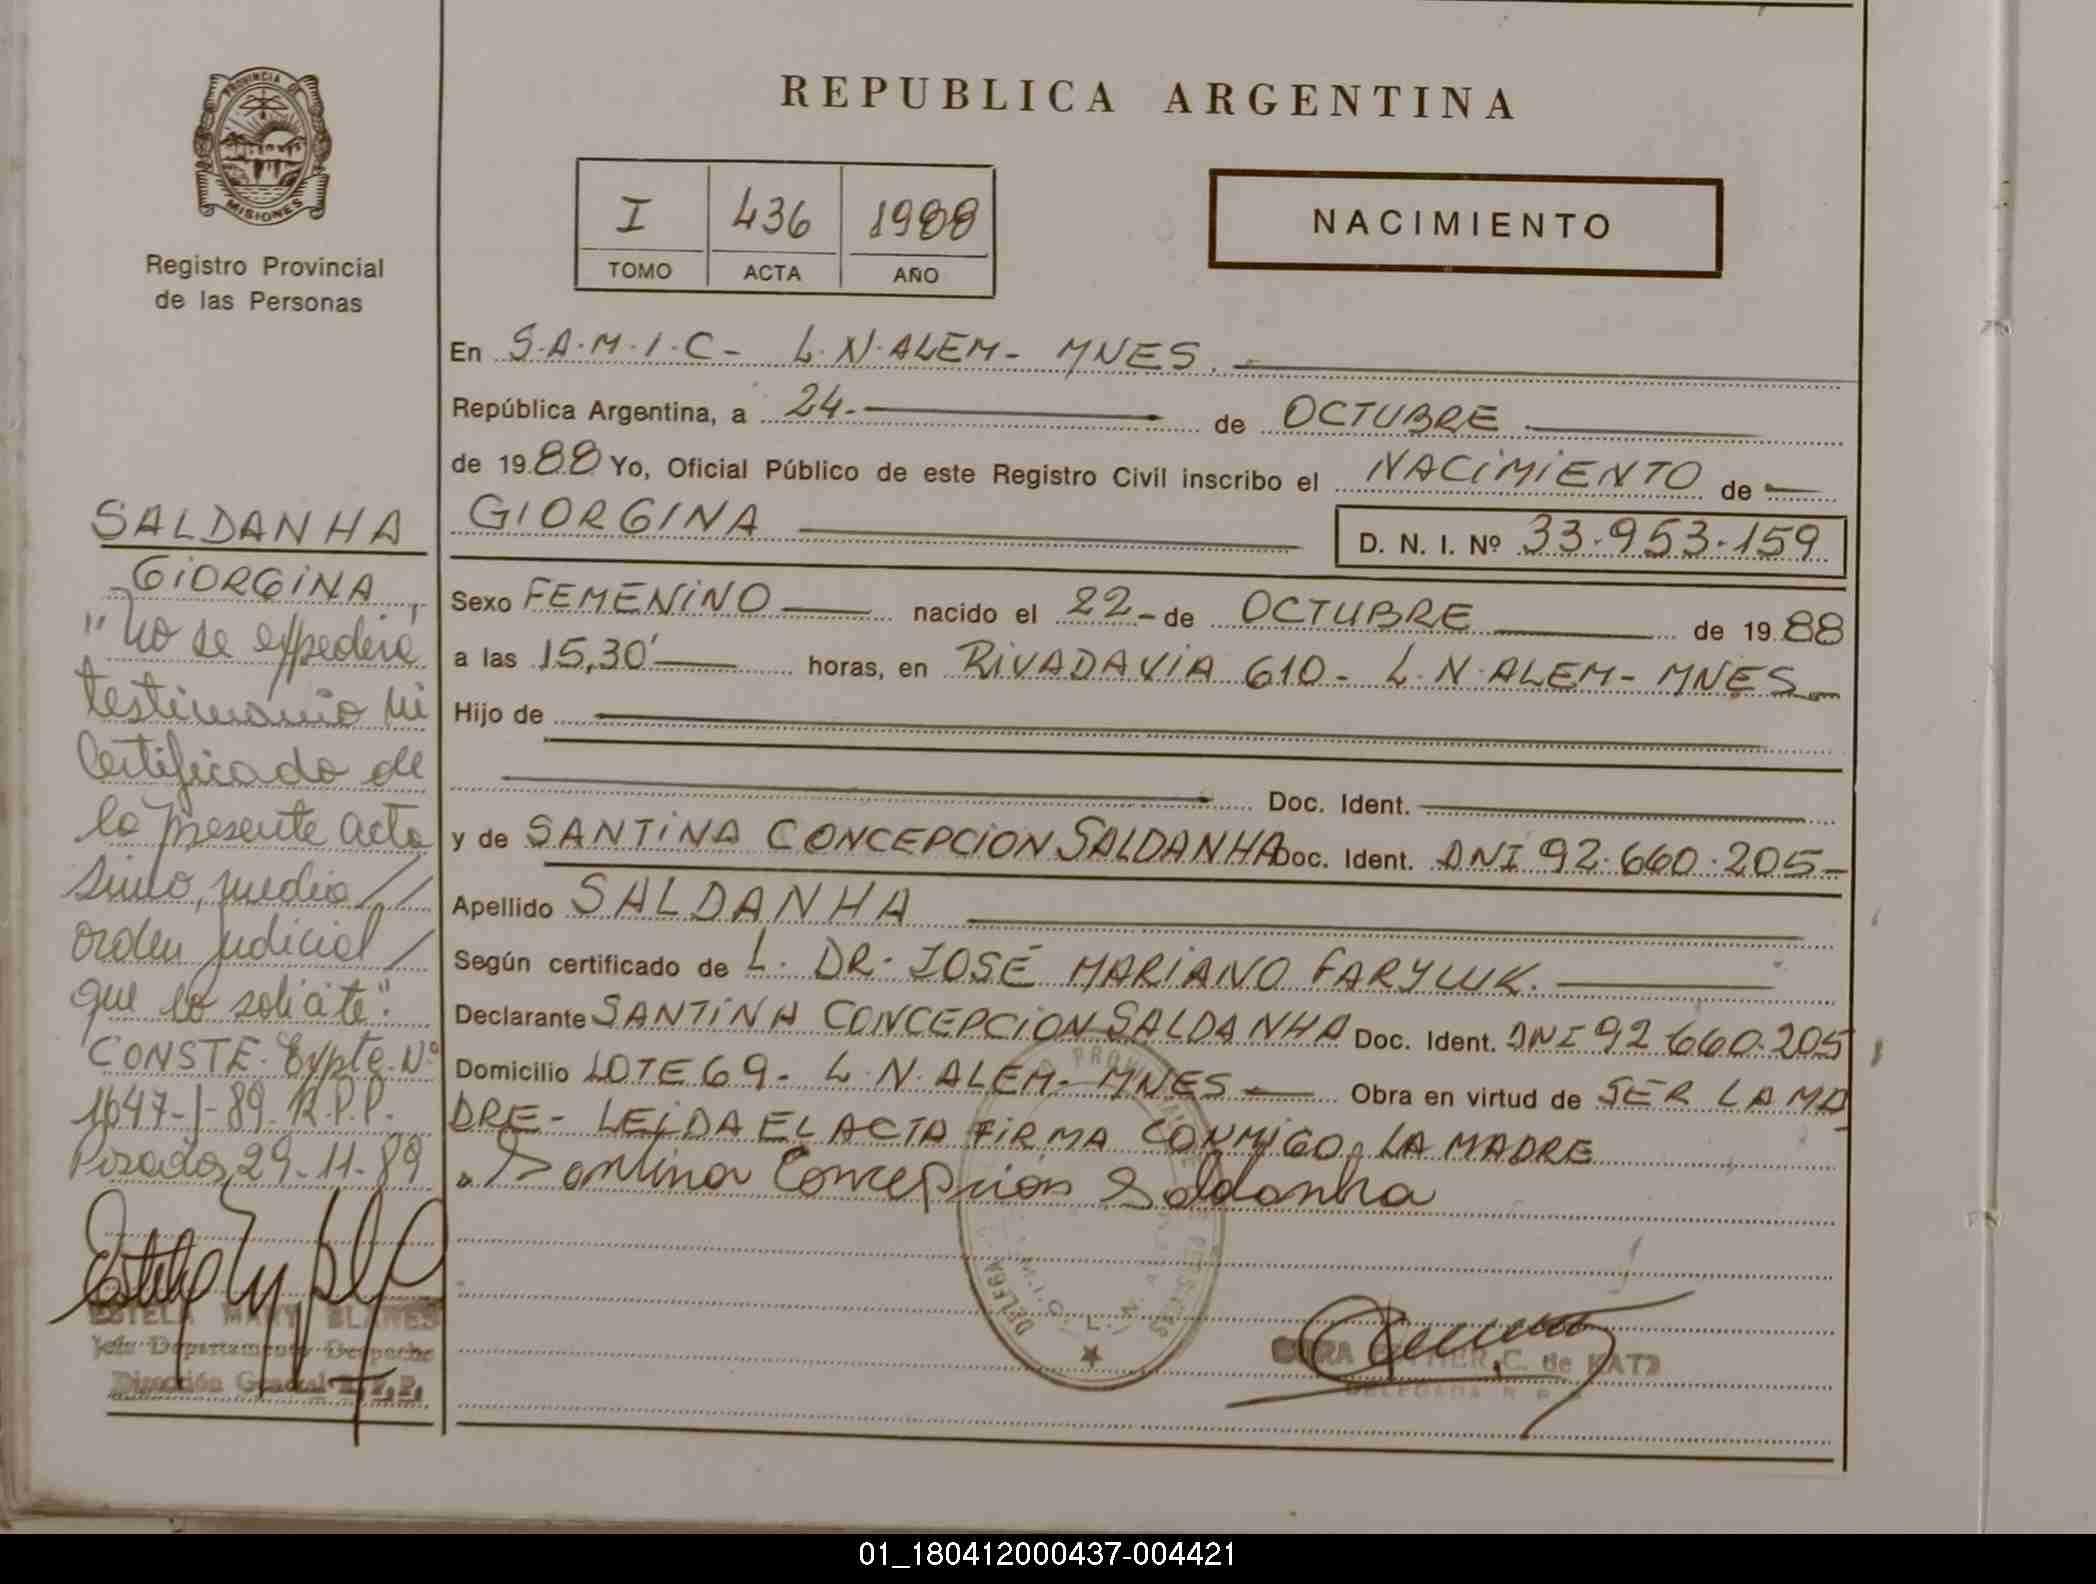 PROVINCIA DE
MISIONES
Registro Provincial
de las Personas
REPUBLICA ARGENTINA
I 436 1988
TOMO ACTA AÑO
NACIMIENTO
En S.A.M.I.C- L.N.ALEM- MNES.
República Argentina, a 24.- de OCTUBRE
de 1988 Yo, Oficial Público de este Registro Civil inscribo el NACIMIENTO de
GIORGINA D. N. I. Nº 33.953.159
Sexo FEMENINO nacido el 22- de OCTUBRE de 1988
a las 15,30' horas, en RIVADAVIA 610- L.N.ALEM- MNES
Hijo de
Doc. Ident.
y de SANTINA CONCEPCION SALDANHA Doc. Ident. DNI 92.660.205-
Apellido SALDANHA
Según certificado de L. DR. JOSÉ MARIANO FARYLUK.
Declarante SANTINA CONCEPCION SALDANHA Doc. Ident. DNI 92 660.205
Domicilio LOTE 69- L.N.ALEM- MNES Obra en virtud de SER LA MA
DRE- LEIDA EL ACTA FIRMA CONMIGO, LA MADRE
Santina Concepcion Saldanha
SALDANHA
GIORGINA
"No se expedirá
testimonio ni
Certificado de
la presente acta
sino, medio //
orden judicial /
que lo solicite".
CONSTE. Expte. Nº
1647-J-89. R.P.P.
Posadas, 29-11-89
ESTELA MARY BLANES
Jefe Departamento Despacho
Dirección General R.P.P.
C. de KATZ
DELEGADA R P P
01_180412000437-004421